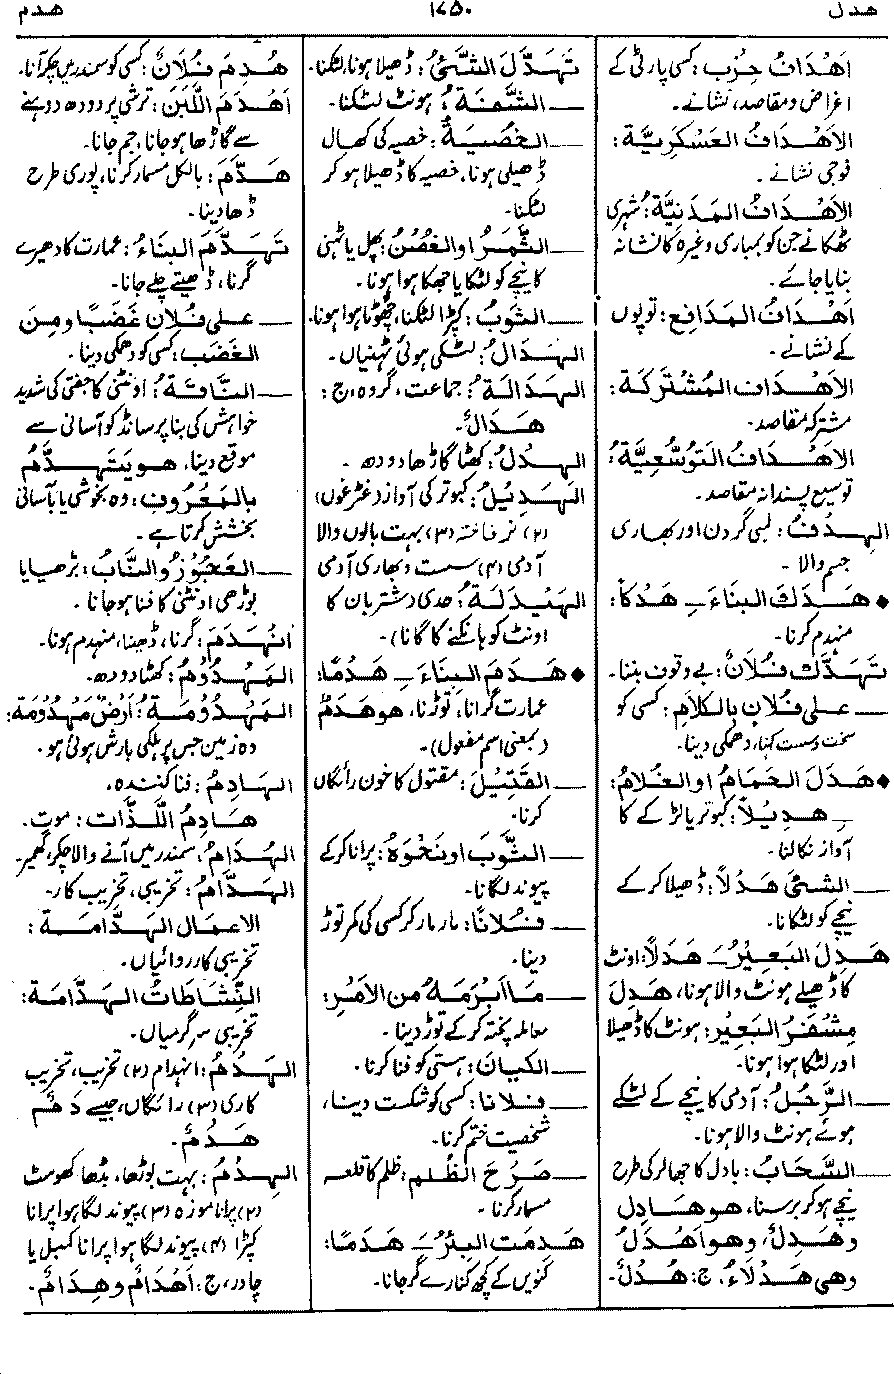 هدل
۱۷۵۰
هدم
اَهْدَافُ حِزْبٍ: کسی پارٹی کے
اغراض و مقاصد، نشانے۔
الأَهْدَافُ العَسْكَرِيَّة:
فوجی نشانے۔
الأَهْدَافُ المَدَنِيَّة: شہری
ٹھکانے جن کو بمباری وغیرہ کا نشانہ
بنایا جائے۔
اَهْدَافُ المَدَافِعِ: توپوں
کے نشانے۔
الأَهْدَافُ المُشْتَرَكَة:
مشترکہ مقاصد۔
الأَهْدَافُ التَوَسُّعِيَّة:
توسیع پسندانہ مقاصد۔
الهِدْفُ: لمبی گردن اور بھاری
جسم والا۔
♦ هَدَكَ البِنَاءَ ـِ هَدْكًا:
منہدم کرنا۔
تَهَدَّكَ فُلَانٌ: بے وقوف بننا۔
— على فُلانٍ بِالكَلَامِ: کسی کو
سخت و سست کہنا، دھمکی دینا۔
♦ هَدَلَ الحَمَامُ او الغُلَامُ:
ـِ هَدِيْلاً: کبوتر یا لڑکے کا
آواز نکالنا۔
— الشئَ هَدْلاً: ڈھیلا کرکے
نیچے کو لٹکانا۔
هَدِلَ البَعِيْرُ ـَ هَدَلاً: اونٹ
کا ڈھیلے ہونٹ والا ہونا، هَدِلَ
مِشْفَرُ البَعِيْرِ: ہونٹ کا ڈھیلا
اور لٹکا ہوا ہونا۔
— الرَّجُلُ: آدمی کا نیچے کے لٹکے
ہوئے ہونٹ والا ہونا۔
— السَّحَابُ: بادل کا جھالر کی طرح
نیچے ہو کر برسنا، هو هَادِل
وهَدِلٌ، وهو اَهْدَلُ
وهي هَدْلَاءُ، ج: هُدْلٌ۔
تَهَدَّلَ الشَّئُ: ڈھیلا ہونا، لٹکنا۔
— الشَّفَةُ: ہونٹ لٹکنا۔
— الخُصْيَةُ: خصیہ کی کھال
ڈھیلی ہونا، خصیہ کا ڈھیلا ہو کر
لٹکنا۔
— الثَّمَرُ او الغُصْنُ: پھل یا ٹہنی
کا نیچے کو لٹکا یا جھکا ہوا ہونا۔
— الثَوبُ: کپڑا لٹکنا، چھوٹا ہوا ہونا۔
الهَدَالُ: لٹکی ہوئی ٹہنیاں۔
الهَدَالَةُ: جماعت، گروہ، ج:
هَدَالٌ۔
الهِدْلُ: کھٹا گاڑھا دودھ۔
الهَدِيْلُ: کبوتر کی آواز (غٹرغوں)
(۲) نر فاختہ (۳) بہت بالوں والا
آدمی (۴) سست و بھاری آدمی
الهَيْدَلَةُ: حدی (شتربان کا
اونٹ کو ہانکنے کا گانا)۔
♦ هَدَمَ البِنَاءَ ـِ هَدْمًا:
عمارت گرانا، توڑنا، هو هَدَمٌ
(بمعنی اسم مفعول)۔
— القَتِيْلَ: مقتول کا خون رائگاں
کرنا۔
— الثَّوبَ او نَحْوَهُ: پرانا کرکے
پیوند لگانا۔
— فُلَانًا: مار مار کر کسی کی کمر توڑ
دینا۔
— مَا اَبْرَمَهُ من الأَمْرِ:
معاملہ پختہ کرکے توڑ دینا۔
— الكيانَ: ہستی کو فنا کرنا۔
— فلانا: کسی کو شکست دینا،
شخصیت ختم کرنا۔
— صَرْحَ الظُلم: ظلم کا قلعہ
مسمار کرنا۔
هَدِمَتِ البِئْرُ ـَ هَدَمًا:
کنویں کے کچھ کنارے گر جانا۔
هُدِمَ فُلَانٌ: کسی کو سمندر میں چکر آنا۔
اَهْدَمَ اللَّبَنَ: ترشی پر دودھ دوہنے
سے گاڑھا ہو جانا، جم جانا۔
هَدَّمَ: بالکل مسمار کرنا، پوری طرح
ڈھا دینا۔
تَهَدَّمَ البِنَاءُ: عمارت کا دھیرے
گرنا، ڈھیتے چلے جانا۔
— على فُلَانٍ غَضَبًا ومِنَ
الغَضَبِ: کسی کو دھمکی دینا۔
— النَّاقَةُ: اونٹنی کا جفتی کی شدید
خواہش کی بنا پر سانڈ کو آسانی سے
موقع دینا، هو يَتَهَدَّمُ
بِالمَعْرُوفِ: وہ بخوشی یا بآسانی
بخشش کرتا ہے۔
— العَجُوْزُ والنَّابُ: بڑھیا یا
بوڑھی اونٹنی کا فنا ہو جانا۔
اِنْهَدَمَ: گرنا، ڈھینا، منہدم ہونا۔
المَهْدُوْمُ: کھٹا دودھ۔
المَهْدُوْمَةُ: اَرْضٌ مَهْدُوْمَة:
وہ زمین جس پر ہلکی بارش ہوئی ہو۔
الهَادِمُ: فنا کنندہ،
هَادِمُ اللَّذَّات: موت۔
الهُدَامُ: سمندر میں آنے والا چکر، گھمیر۔
الهَدَّامُ: تخریبی، تخریب کار۔
الأعمال الهَدَّامَة:
تخریبی کارروائیاں۔
النَّشَاطَاتُ الهَدَّامَة:
تخریبی سرگرمیاں۔
الهَدْمُ: انہدام (۲) تخریب، تخریب
کاری (۳) رائگاں، جیسے دَمٌ
هَدْمٌ۔
الهِدْمُ: بہت بوڑھا، بڈھا کھوسٹ
(۲) پرانا موزہ (۳) پیوند لگا ہوا پرانا
کپڑا (۴) پیوند لگا ہوا پرانا کمبل یا
چادر، ج: اَهْدَامٌ وهِدَامٌ۔